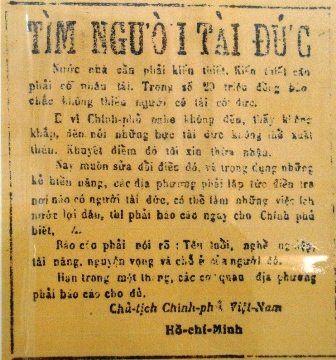 TÌM NGƯỜI TÀI ĐỨC
Nước nhà cần phải kiến thiết. Kiến thiết cần
phải có nhân tài. Trong số 20 triệu đồng bào
chắc không thiếu người có tài có đức.
E vì Chính-phủ nghe không đến, thấy không
khắp, đến nỗi những bực tài đức không thể xuất
thân. Khuyết điểm đó tôi xin thừa nhận.
Nay muốn sửa đổi điều đó, và trọng dụng những
kẻ hiền năng, các địa phương phải lập tức điều tra
nơi nào có người tài đức, có thể làm những việc ích
nước lợi dân, thì phải báo cáo ngay cho Chính phủ
biết.
Báo cáo phải nói rõ: Tên tuổi, nghề nghiệp,
tài năng, nguyện vọng và chỗ ở của người đó.
Hạn trong một tháng, các cơ quan địa phương
phải báo cáo cho đủ.
Chủ-tịch Chính-phủ Việt-Nam
Hồ-chí-Minh